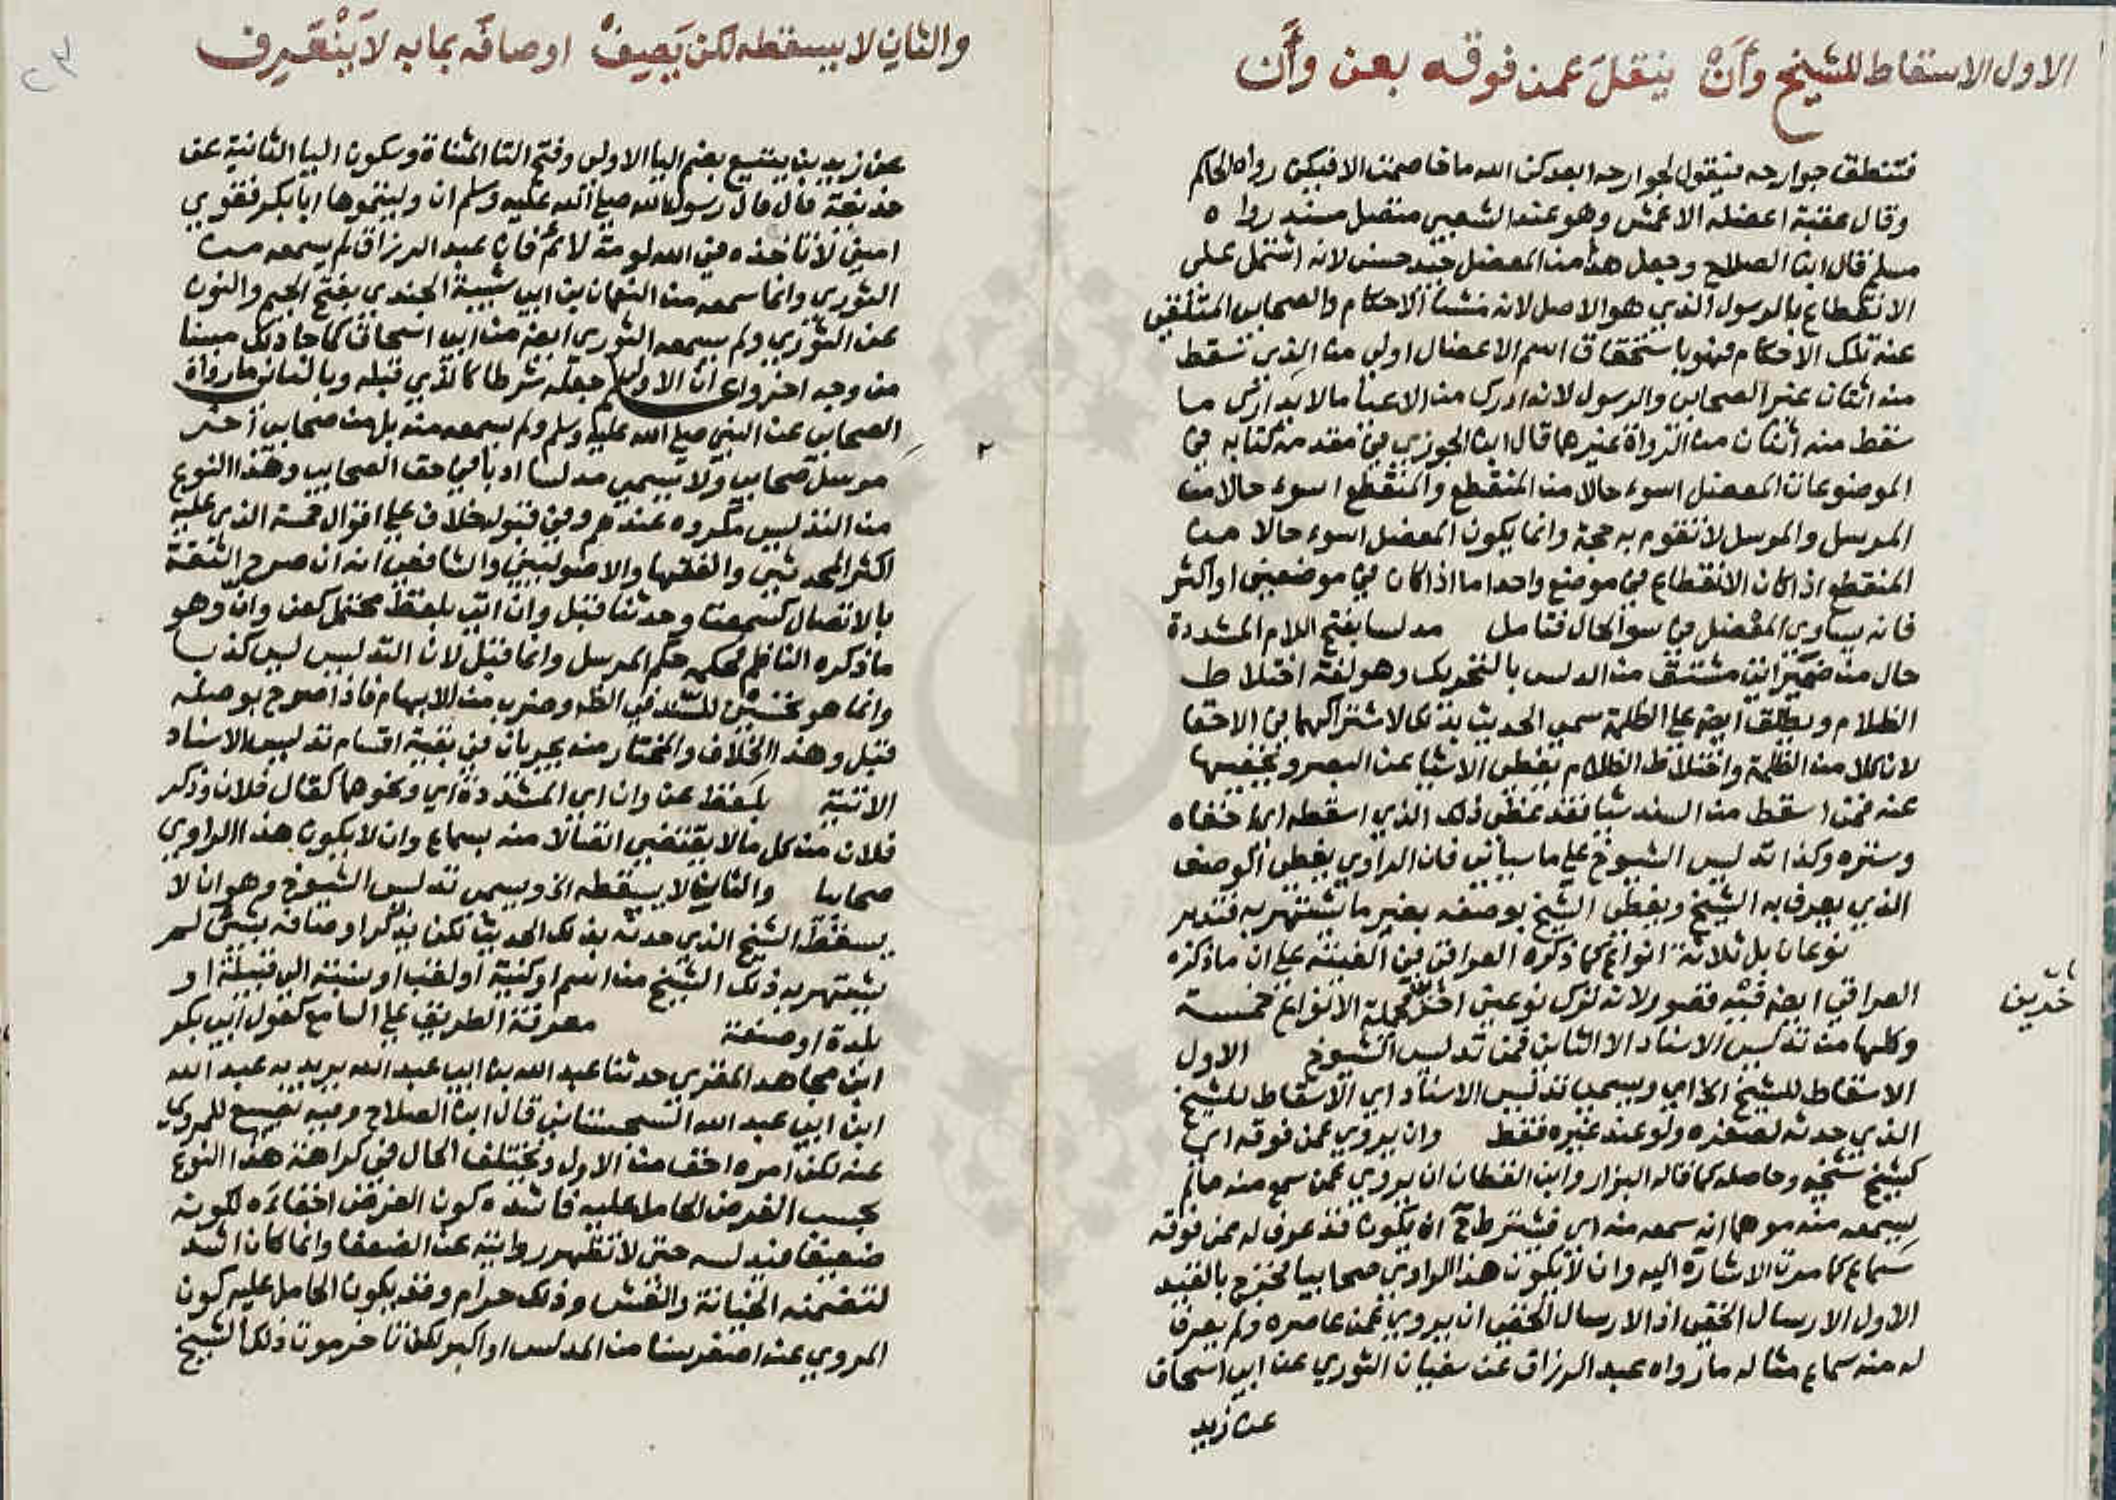 الاول الاسقاط للشيخ وأن ينقل عمن فوقه بعن وأن
فتنطق جوارحه فيقول لجوارحه ابعدكن الله ما خاصمت الا فيكن رواه الحاكم
وقال عقبة اعضله الاعمش وهو عند الشعبي متصل مسند رواه
مسلم قال ابن الصلاح وجعل هذا من المعضل جيد حسن لانه اشتمل على
الانقطاع بالرسول الذي هو الاصل لانه منشأ الاحكام والصحابي المتلقي
عنه تلك الاحكام فهو باستحقاق اسم الاعضال اولى من الذي سقط
منه اثنان غير الصحابي والرسول لانه ادرك من الاعيا ما لا يدازى ما
سقط منه اثنان من الرواة غيرهما قال ابن الجوزي في مقدمة كتابه في
الموضوعات المعضل اسوء حالا من المنقطع والمنقطع اسوء حالا من
المرسل والمرسل لا تقوم به حجة وانما يكون المعضل اسوء حالا من
المنقطع اذا كان الانقطاع في موضع واحد اما اذا كان في موضعين او اكثر
فانه يساوي المعضل في سوء الحال فتامل مدلسا بفتح اللام المشددة
حال من ضمير اتى مشتق من الدلس بالتحريك وهو لغة اختلاط
الظلام ويطلق ايضا على الظلمة سمى الحديث بذلك لاشتراكهما في الاخفا
لان كلا من الظلمة واختلاط الظلام يغطى الاشيا عن البصر ويخفيها
عنه فمن اسقط من السند شيا فقد غطى ذلك الذي اسقطه اي اخفاه
وستره وكذا تدليس الشيوخ على ما سياتي فان الراوي يغطي الوصف
الذي يعرف به الشيخ ويغطي الشيخ بوصفه بغير ما يشتهر به فتدبر
نوعان بل ثلاثة انواع كما ذكره العراقي في الفيته على ان ما ذكره
العراقي ايضا فيه قصور لانه ترك نوعين اخر فجملة الانواع خمسة
وكلها من تدليس الاسناد الا الثاني فمن تدليس الشيوخ الاول
الاسقاط للشيخ الخ اي ويسمى تدليس الاسناد اي الاسقاط للشيخ
الذي حدثه لصغره ولو عند غيره فقط وان يروي عمن فوقه اي
كشيخ شيخه وحاصله كما قاله البزار وابن القطان ان يروي عمن سمع منه ما لم
يسمعه منه موهما انه سمعه منه اي فيشترط ح ان يكون قد عرف له عمن فوقه
سماع كما مرت الاشارة اليه وان لا يكون هذا الراوي صحابيا فخرج بالقيد
الاول الارسال الخفي اذ الارسال الخفي ان يروي عمن عاصره ولم يعرف
له منه سماع مثاله ما رواه عبد الرزاق عن سفيان الثوري عن ابي اسحاق
عن زيد
اخرين
والثان لا يسقطه لكن يصف اوصافه بما به لا ينعرف
عن زيد بن يثيع بضم اليا الاولى وفتح التا المثناة وسكون اليا الثانية عن
حذيفة قال قال رسول الله صلى الله عليه وسلم ان وليتموها ابا بكر فقوي
امين لا تاخذه في الله لومة لائم فان عبد الرزاق لم يسمعه من
الثوري وانما سمعه من النعمان بن ابي شيبة الجندي بفتح الجيم والنون
عن الثوري ولم يسمعه الثوري ايضا من ابي اسحاق كما جا ذلك مبينا
من وجه اخر واعـ ان الاولى جعله شرطا كالذي قبله وبالثاني ما رواه
الصحابي عن النبي صلى الله عليه وسلم ولم يسمعه منه بل من صحابي اخر
مرسل صحابي ولا يسمى مدلسا ادبا في حق الصحابي وهذا النوع
من التدليس مكروه عندهم وفي قبوله خلاف على اقوال خمسة الذي عليه
اكثر المحدثين والفقها والاصوليين والشافعي انه ان صرح الثقة
بالاتصال كسمعت وحدثنا قبل وان اتى بلفظ محتمل كعن وان وهو
ما ذكره الناظم فحكمه حكم المرسل وانما قبل لان التدليس ليس كذبا
وانما هو تحسين للسند في الظاهر وضرب من الابهام فاذا صرح بوصله
قبل وهذا الخلاف والمختار منه يجريان في بقية اقسام تدليس الاسناد
الاتية بلفظ عن وان اي المشددة اي ونحوهما كقال فلان وذكر
فلان من كل ما لا يقتضي اتصالا منه بسماع وان لا يكون هذا الراوي
صحابيا والثان لا يسقطه الخ ويسمى تدليس الشيوخ وهو ان لا
يسقط الشيخ الذي حدثه بذلك الحديث لكن يذكر اوصافه بشي لم
يشتهر به ذلك الشيخ من اسم او كنية او لقب او نسبة الى قبيلة او
بلدة او صنعة معرفة الطريق على السامع كقول ابي بكر
ابن مجاهد المقري حدثنا عبد الله بن ابي عبد الله يريد به عبد الله
ابن ابي عبد الله السجستاني قال ابن الصلاح وفيه تضييع للمروي
عنه لكن امره اخف من الاول ويختلف الحال في كراهة هذا النوع
بحسب الغرض الحامل عليه فاشده كون الغرض اخفاءه لكونه
ضعيفا فيدلسه حتى لا تظهر روايته عن الضعفا وانما كان اشد
لتضمنه الخيانة والغش وذلك حرام وقد يكون الحامل عليه كون
المروي عنه اصغر سنا من المدلس او اكبر لكن تاخر موت ذلك الشيخ